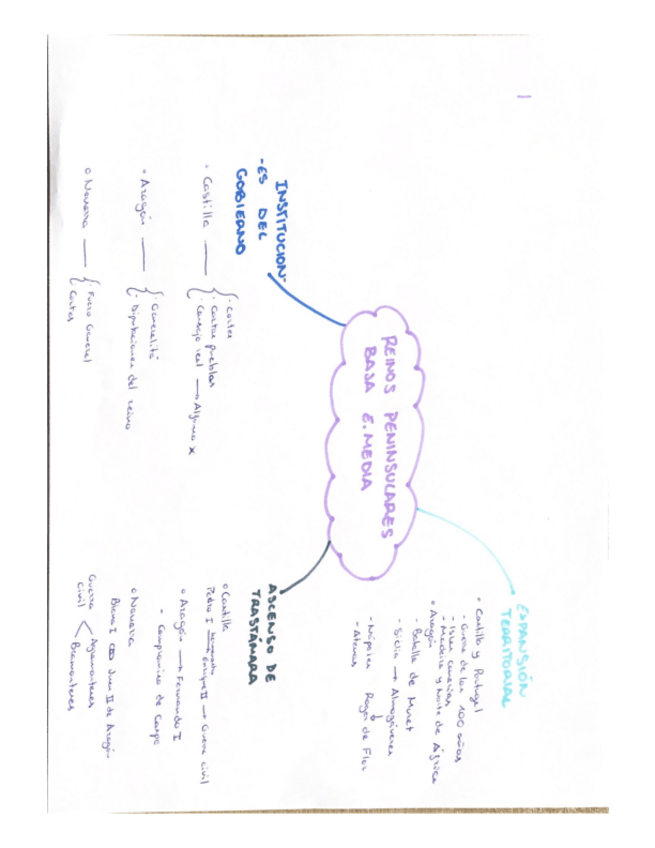 1
REINOS PENINSULARES
BAJA E. MEDIA
INSTITUCION-
-ES DEL
GOBIERNO
• Castilla — { · Cortes
· Cartas pueblas
· Consejo real → Alfonso X
• Aragón — { · Generalitá
· Diputaciones del reino
• Navarra — { Fuero General
Cortes
EXPANSIÓN
TERRITORIAL
• Castilla y Portugal
- Guerra de los 100 años
- Islas Canarias
- Madeira y Norte de África
• Aragón
- Batalla de Muret
- Sicilia → Almogáveres
- Nápoles Roger de Flor
- Atenas
ASCENSO DE
TRASTÁMARA
• Castilla
Pedro I → Enrique II → Guerra civil
• Aragón → Fernando I
- Compromiso de Caspe
• Navarra
Blanca I Juan II de Aragón
Guerra
civil < Agramonteses
Beamonteses